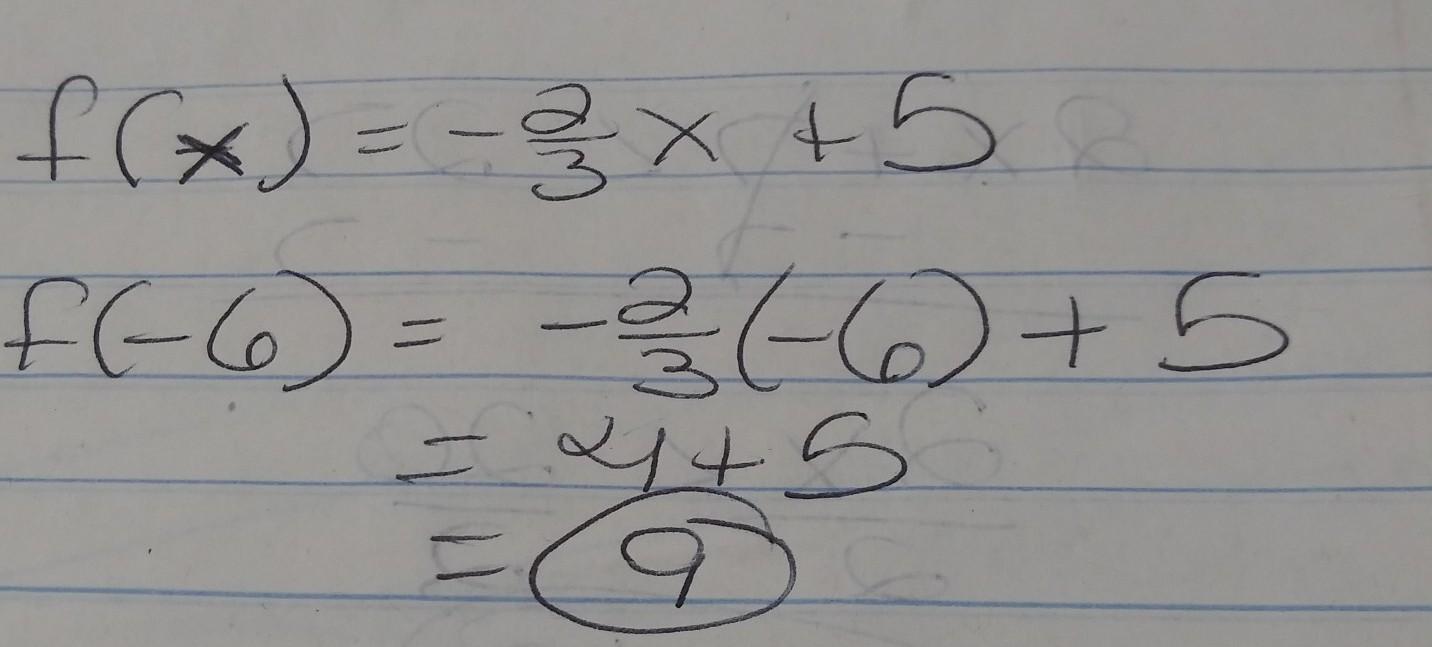 f(x) = -2/3 x + 5
f(-6) = -2/3 (-6) + 5
= 4 + 5
= 9